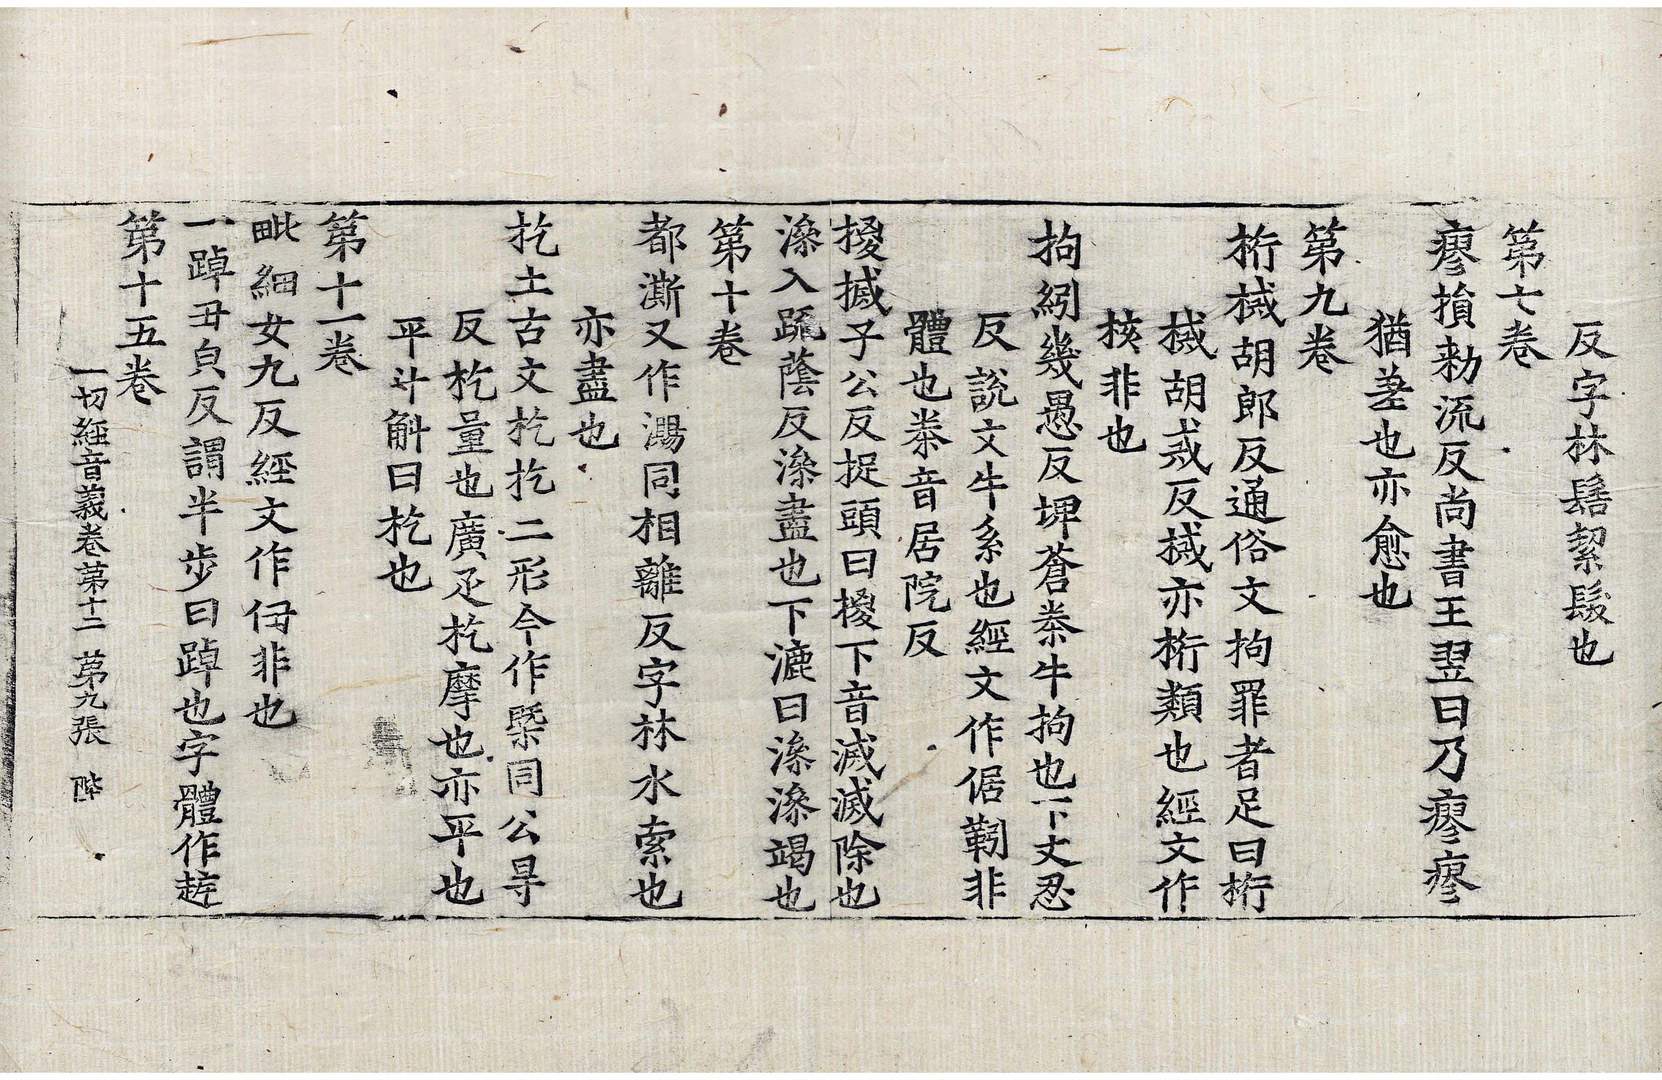 反字林髻絜髮也
第七卷
瘳損勑流反尚書王翌日乃瘳瘳
猶差也亦愈也
第九卷
桁械胡郎反通俗文拘罪者足曰桁
械胡戒反械亦桁類也經文作
核非也
拘紖幾愚反埤蒼桊牛拘也下丈忍
反說文牛系也經文作倨靷非
體也桊音居院反
㩳搣子公反捉頭曰㩳下音滅滅除也
潒入疏蔭反潒盡也下漉曰潒潒竭也
第十卷
都澌又作㵩同相離反字林水索也
亦盡也
扢土古文杚扢二形今作㮣同公㝵
反杚量也廣疋杚摩也亦平也
平斗斛曰杚也
第十一卷
毗細女九反經文作伊非也
一踔丑㒵反謂半步曰踔也字體作趠
第十五卷
一切經音義卷第十二 第九張 陛